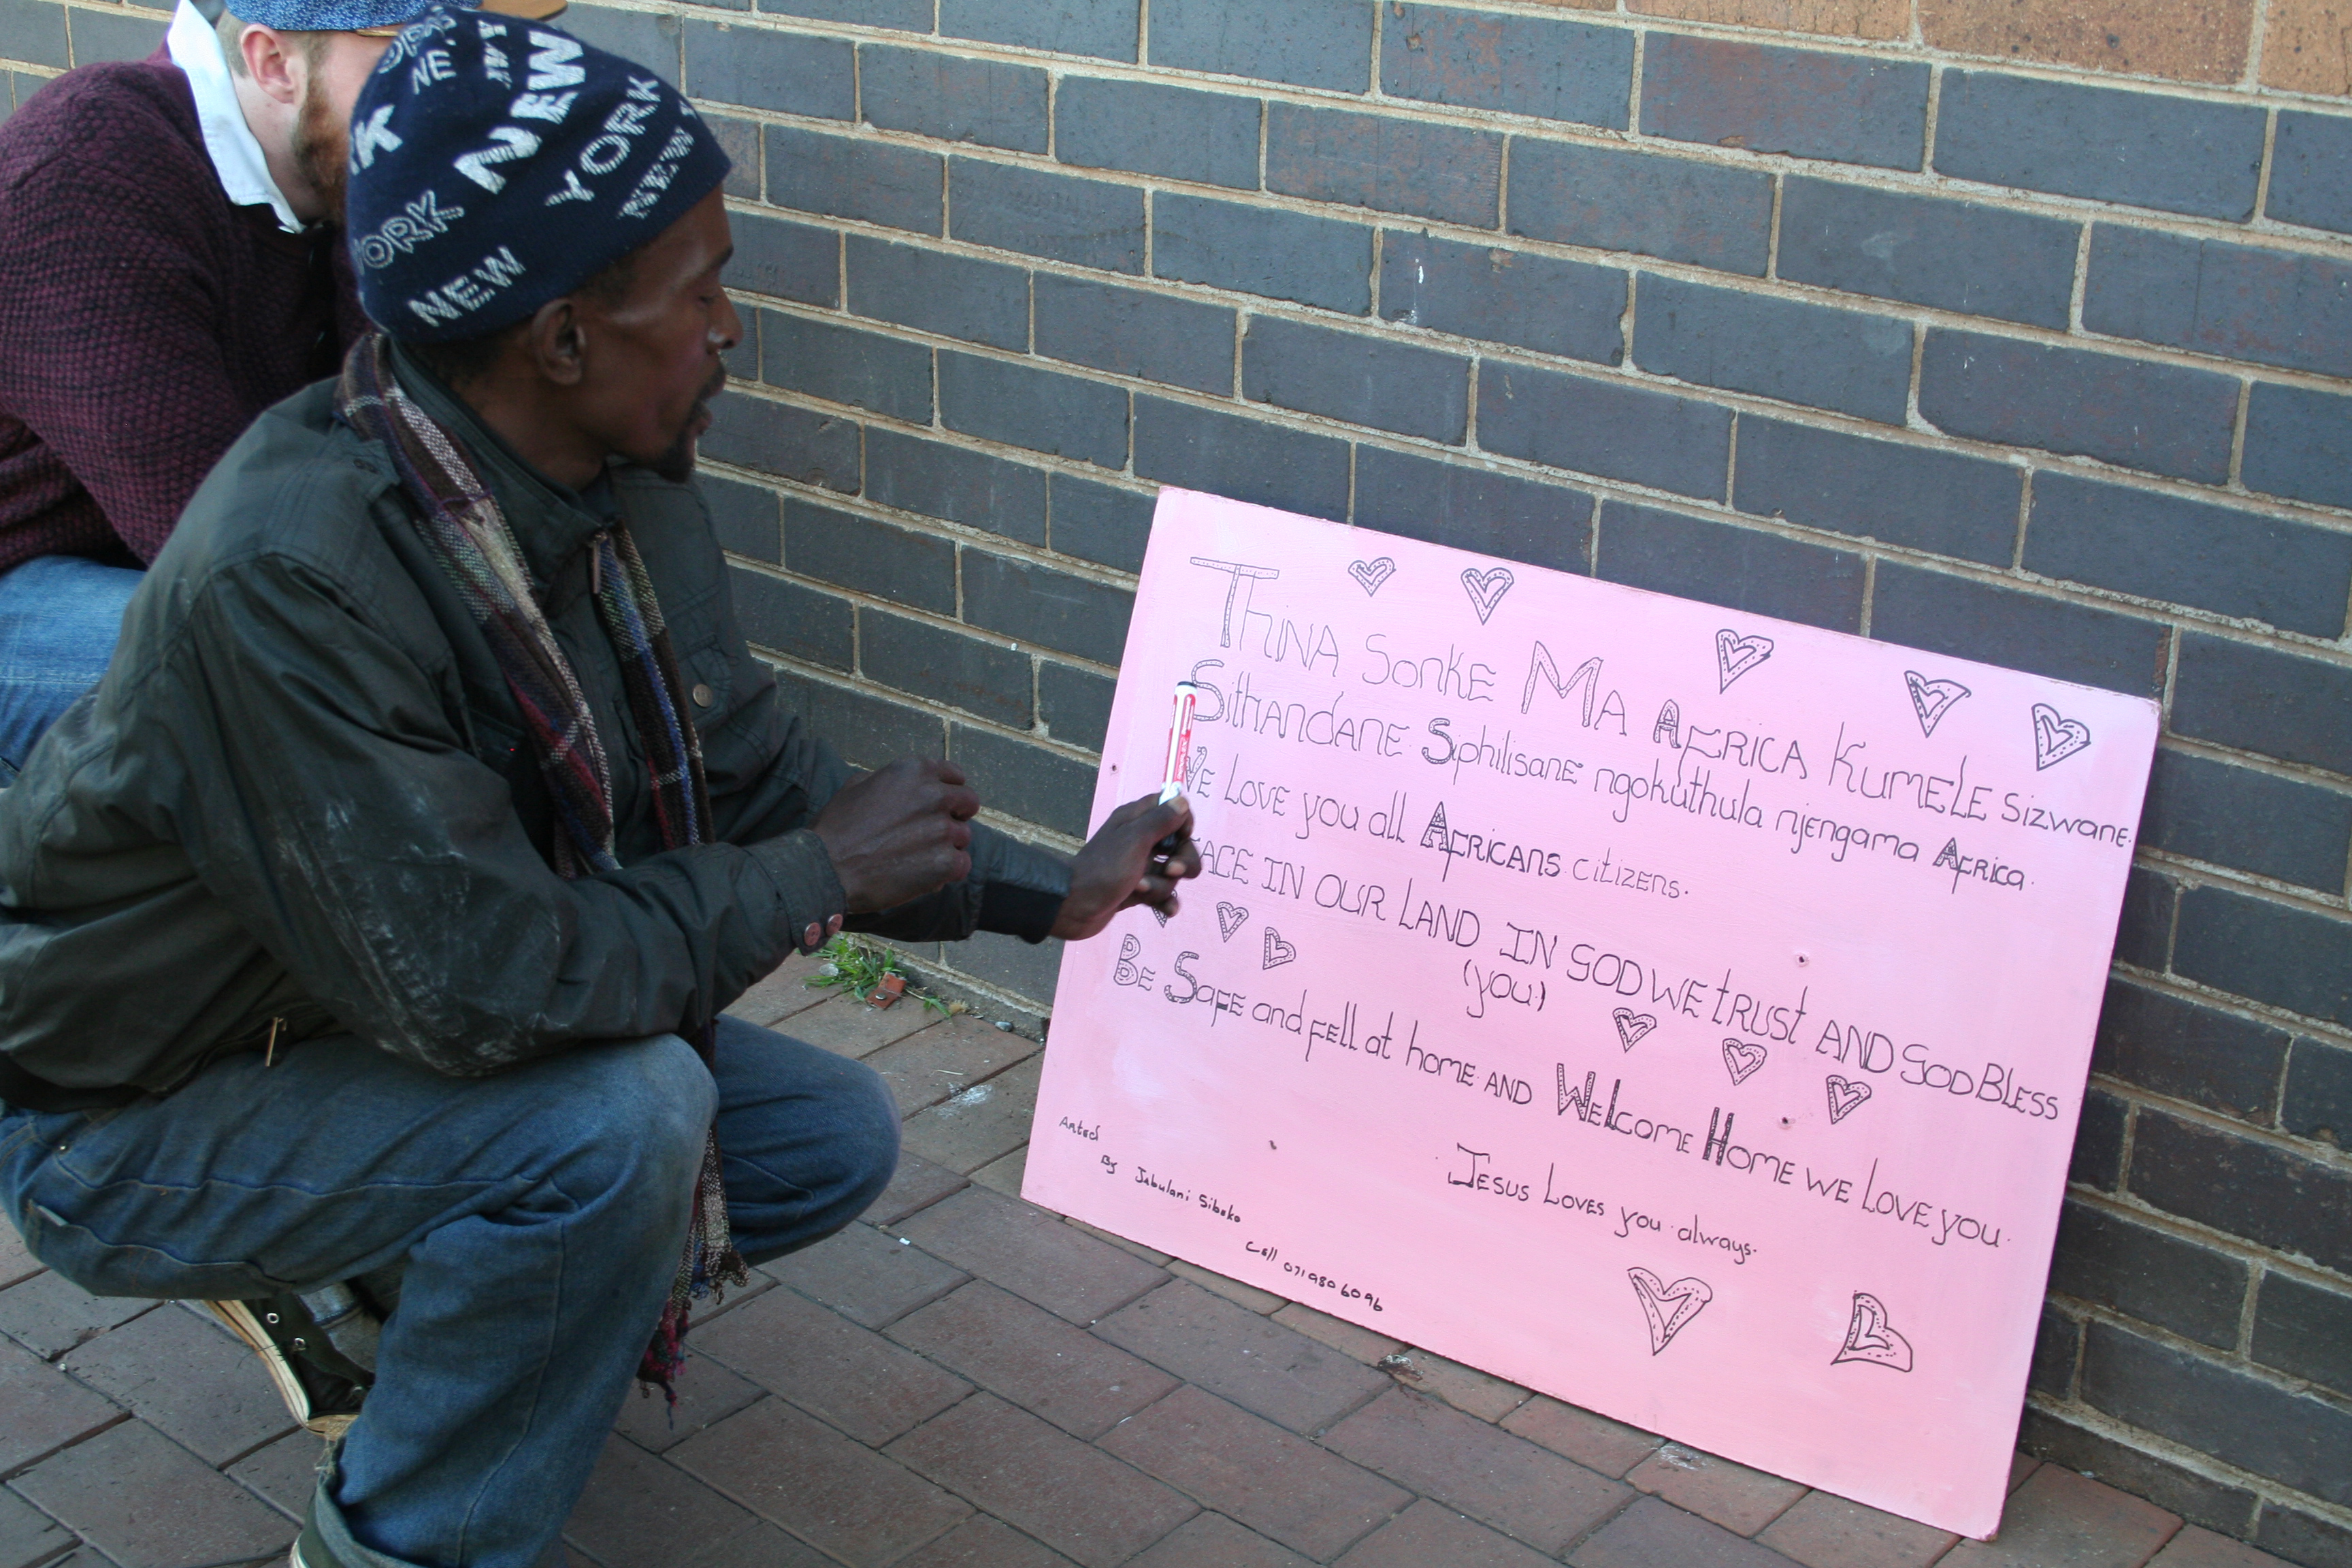 NEW YORK
YORK
NEW
THINA SONKE MA AFRICA KUMELE SIZWANE.
SITHANDANE SIPHILISANE ngokuthula njengama AFRICA.
WE LOVE you all AFRICANS citizens.
PEACE IN OUR LAND IN GOD WE TRUST AND GOD BLESS
(you)
BE SAFE and fell at home AND WELCOME HOME WE LOVE you.
JESUS LOVES you always.
By Jabulani Siboko
Cell 0719806096